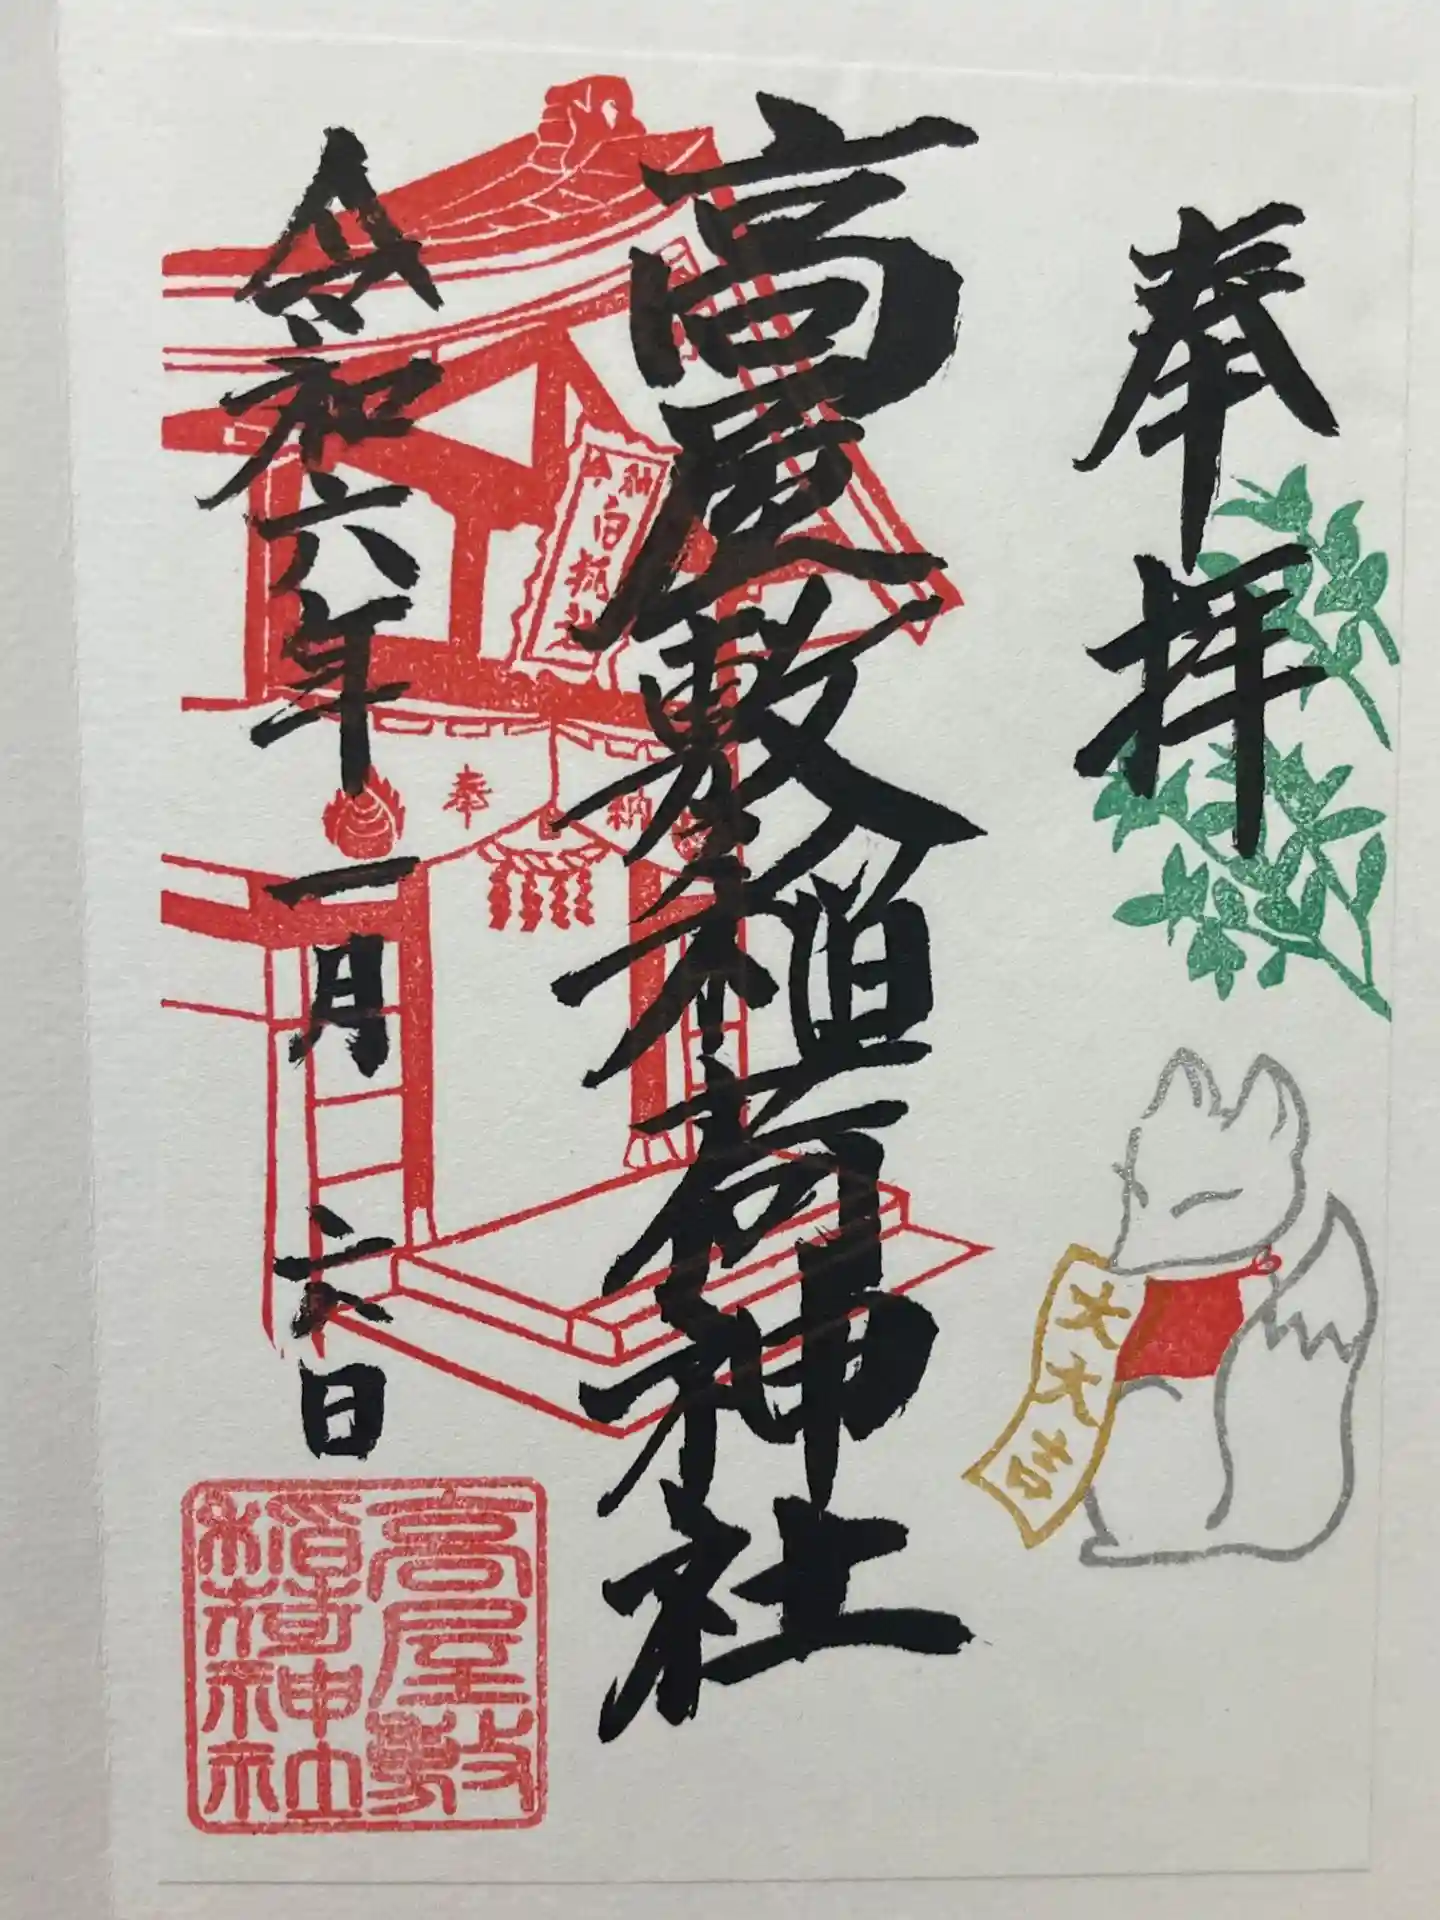 奉拝
高屋敷稲荷神社
令和六年一月六日
大大吉
奉
納
高屋敷
稲荷神社